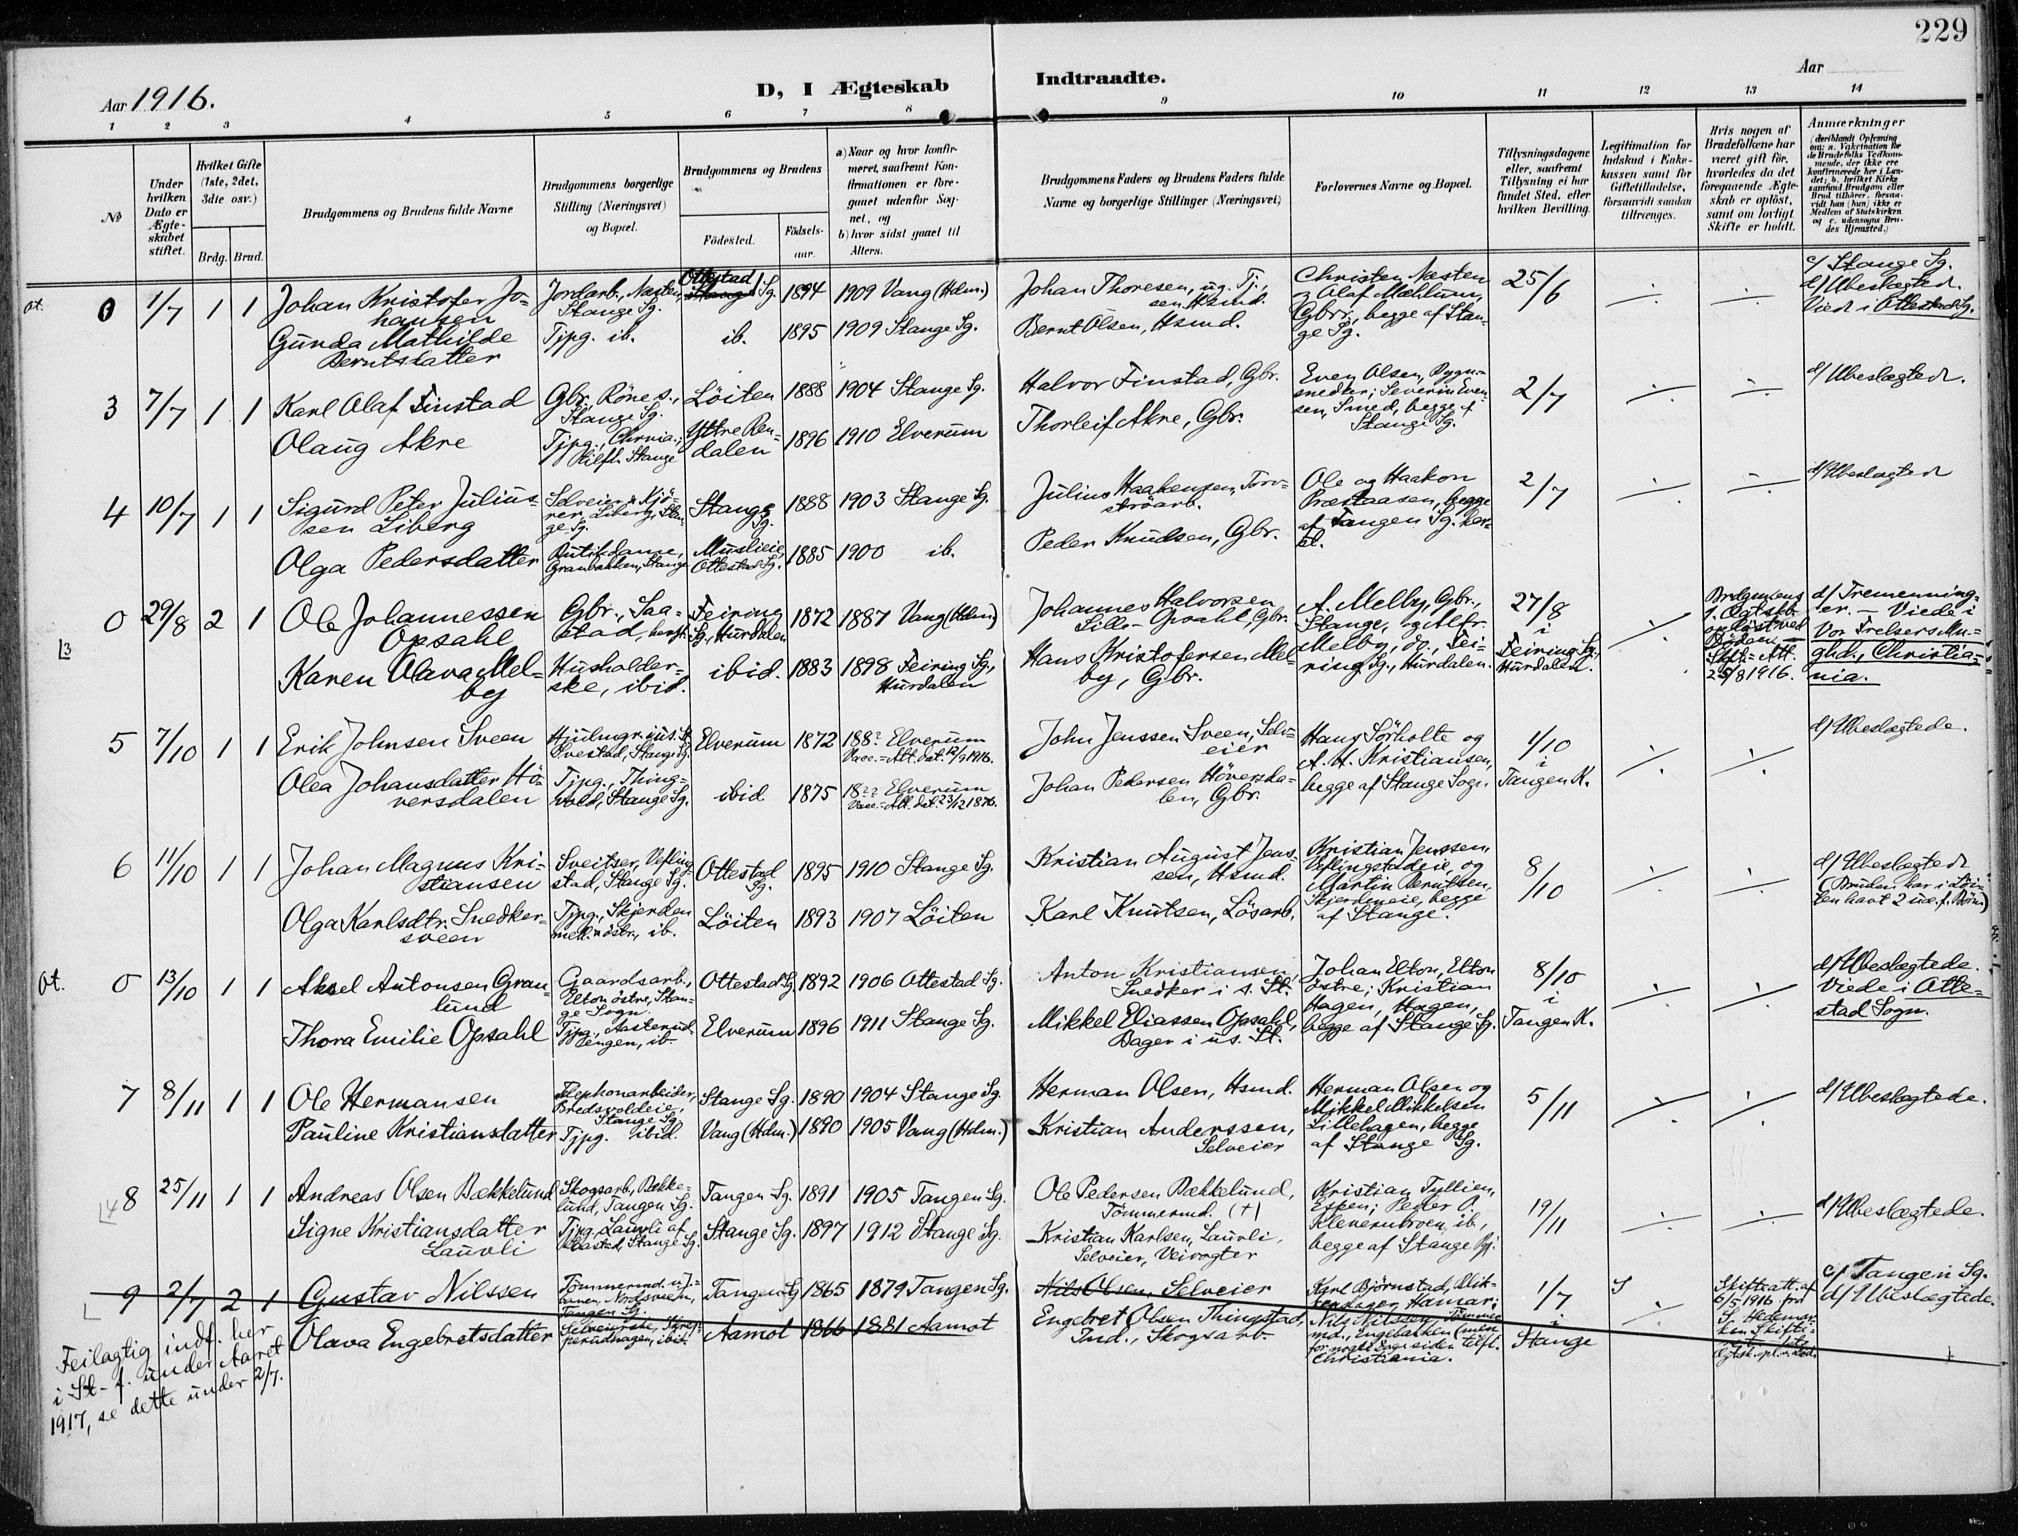 229
Aar 1916.
D, I Ægteskab Indtraadte.
Aar
1 2 3 4 5 6 7 8 9 10 11 12 13 14
No
Under hvilken Dato er Ægteskabet stiftet.
Hvilket Gifte (1ste, 2det, 3die osv.)
Brdg. Brud.
Brudgommens og Brudens fulde Navne
Brudgommens borgerlige Stilling (Næringsvei) og Bopæl.
Brudgommens og Brudens
Födested.
Födselsaar.
a) Naar og hvor konfirmeret, saafremt Konfirmationen er foregaaet udenfor Sognet, og
b) hvor sidst gaaet til Alters.
Brudgommens Faders og Brudens Faders fulde Navne og borgerlige Stillinger (Næringsvei)
Forlovernes Navne og Bopæl.
Tillysningsdagene eller, saafremt Tillysning ei har fundet Sted, efter hvilken Bevilling.
Legitimation for Indskud i Enkekassen samt for Giftetilladelse, forsaavidt saadan tiltrænges.
Hvis nogen af Brudefolkene har været gift för, hvorledes da det foregaaende Ægteskab er oplöst, samt om lovligt Skifte er holdt.
Anmærkninger
(deriblandt Oplysning om: a. Vakcination for de Brudefolks Vedkommende, der ikke ere konfirmerede her i Landet; b. hvilket Kirkesamfund Brudgom eller Brud tilhörer, forsaavidt han (hun) ikke er Medlem af Statskirken og c. udensogns Brudes Hjemsted.)
Ot. 0 1/7 1 1 Johan Kristofer Johansen
Jordarb., Næsten, Stange Sg.
Ottestad Sg. 1894 1909 Vang (Hdm.)
Johan Thoresen, ug. Tj., sen. Hsmd.
Christen Næsten og Olaf Mæhlum, Gbrr., begge af Stange Sg.
25/6
c/ Stange Sg.
d/ Ubeslægtede.
Viede i Ottestad Sg.
Gunda Mathilde Berntsdatter
Tjpg. ib. ib. 1895 1909 Stange Sg.
Bernt Olsen, Hsmd.
3 7/7 1 1 Karl Olaf Finstad
Gbr. Röne s., Stange Sg.
Löiten 1888 1904 Stange Sg.
Halvor Finstad, Gbr.
Even Olsen, Bygnsnedker; Severin Evensen, Smed, begge af Stange Sg.
2/7
d/ Ubeslægtede.
Olaug Akre
Tjpg., Chrnia.; tilflt. Stange
Yttre Rendalen 1896 1910 Elverum
Thorleif Akre, Gbr.
4 10/7 1 1 Sigurd Peter Juliussen Liberg
Selveier, Kjörer, Liberg, Stange Sg.
Stange Sg. 1888 1903 Stange Sg.
Julius Haakensen, Torvströarb.
Ole og Haakon Præstaasen, begge af Tangen Sg.
2/7
d/ Ubeslægtede
Olga Pedersdatter
Butikdame, Granbakken, Stange
Muslieie, Ottestad Sg. 1885 1900 ib.
Peder Knudsen, Gbr.
0 29/8 2 1 Ole Johannessen Opsahl
Gbr., Saastad, herfr.
Feiring Sg., Hurdalen 1872 1887 Vang (Hdm.)
Johannes Halvorsen Lille-Opsahl, Gbr.
A. Melby, Gbr., Stange, og Alfr. Melby, do., Feiring Sg., Hurdalen.
27/8 i Feiring Sg., Hurdalen.
Brdgommens 1. Ægtskb. oplöst ved Döden. Skft.-Att. 25/8 1916.
d/ Tremenninger. — Viede i Vor Frelsers Mnghd., Christiania.
Karen Olava Melby
Husholderske, ibid. ibid. 1883 1898 Feiring Sg., Hurdalen
Hans Kristofersen Melby, Gbr.
5 7/10 1 1 Erik Johnsen Sveen
Elverum 1872 188? Elverum
Vacc.-Att. dat. 12/9 1916.
John Jenssen Sveen, Selveier
Hans Sörholte og A. H. Kristiansen, begge af Stange Sogn.
1/10 i Tangen K.
d/ Ubeslægtede.
Olea Johansdatter Höversdalen
Tjpg., Thingvold, Stange Sg. ibid. 1875 18?? Elverum
Vacc.-Att. dat. 23/12 1876.
Johan Pedersen Höversdalen, Gbr.
6 11/10 1 1 Johan Magnus Kristiansen
Sveitser, Veflingstad, Stange Sg.
Ottestad Sg. 1895 1910 Stange Sg.
Kristian August Jenssen, Hsmd.
Kristian Jenssen, Veflingstadeie, og Martin Berntsen, Skjerdneeie, begge af Stange.
8/10
d/ Ubeslægtede
(Bruden har i Löiten havt 2 uæ. f. Börn)
Olga Karlsdtr. Snedkersveen
Tjpg., Skjerden mell. östr., ib.
Löiten 1893 1907 Löiten
Karl Knutsen, Lösarb.
Ot. 0 13/10 1 1 Aksel Antonsen Granlund
Gaardsarb., Elton östre, Stange Sogn
Ottestad Sg. 1892 1906 Ottestad Sg.
Anton Kristiansen, Snedker i s. St.
Johan Elton, Elton östre; Kristian Hagen, Hagen, begge af Stange Sg.
8/10 i Tangen K.
d/ Ubeslægtede.
Viede i Ottestad Sogn.
Thora Emilie Opsahl
Tjpg., Aasterudengen, ib.
Elverum 1896 1911 Stange Sg.
Mikkel Eliassen Opsahl, Bager i us. St.
7 8/11 1 1 Ole Hermansen
Telephonarbeider, Bredsvoldeie, Stange Sg.
Stange Sg. 1890 1904 Stange Sg.
Herman Olsen, Hsmd.
Herman Olsen og Mikkel Mikkelsen Lillehagen, begge af Stange Sg.
5/11
d/ Ubeslægtede.
Pauline Kristiansdatter
Tjpg. ibid. Vang (Hdm.) 1890 1905 Vang (Hdm.)
Kristian Anderssen, Selveier
8 25/11 1 1 Andreas Olsen Bækkelund
Skogsarb., Bækkelund, Tangen Sg.
Tangen Sg. 1891 1905 Tangen Sg.
Ole Pedersen Bækkelund, Tömmermd. (+)
Kristian Tyllien, Espen; Peder O. Kleverubroen, ib., begge af Stange Pgj.
19/11
d/ Ubeslægtede.
Signe Kristiansdatter Lauvli
Tjpg., Lauvli af Bastad, Stange Sg.
Stange Sg. 1897 1912 Stange Sg.
Kristian Karlsen, Lauvli, Selveier, Veivogter
9 2/7 2 1 Gustav Nilssen
Tangen Sg. 1865 1879 Tangen Sg.
Nils Olsen, Selveier
Karl Björnstad, Hamar; Nils Nilssen, Engebakken (men for nogle Dage siden tilflt. Christiania.
1/7 i Stange
Skifteatt. af 2/5 1916 fra S. Hedemarken Skifteret.
c/ Tangen Sg.
d/ Ubeslægtede.
Olava Engebretsdatter
Aamot 1866 1881 Aamot
Engebret Olsen Thingstad, Ind., Skogsarb.
Feilagtig indf. her i St-f. under Aaret 1917, se dette under 2/7.